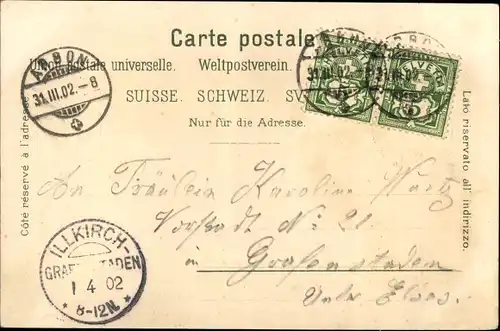 Carte postale
Union postale universelle. Weltpostverein.
SUISSE. SCHWEIZ. SV
Nur für die Adresse.
Côté réservé à l'adresse
Lato riservato all' indirizzo.
ARBON
31.III.02.–8
ARBON
31.III.02
ARBON
HELVETIA
An Fräulein Karoline Wurtz
Vorstadt No 21
in Grafenstaden
Unter Elsass.
ILLKIRCH-
GRAFENSTADEN
1 4 02
* 8-12N. *